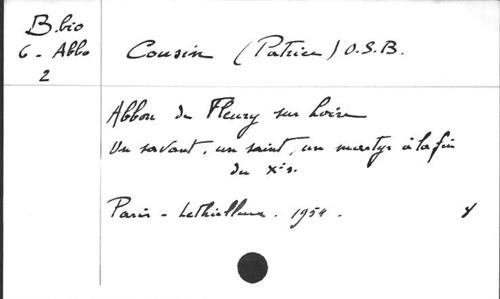 B.bio
6 - Abbo
2
Cousin (Patrice) O.S.B.
Abbon de Fleury sur Loire
Un savant, un saint, un martyr à la fin
du Xe s.
Paris - Lethielleux. 1954.